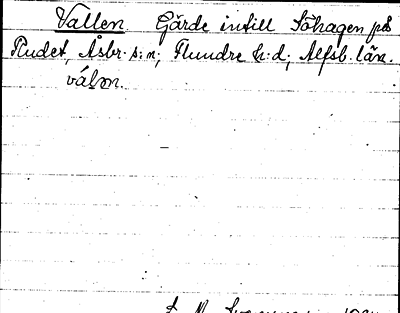 Vallen. Gärde intill Söhagen på
Rudet, Åsbr. s:n; Flundre h:d; Älfsb. län.
válən.